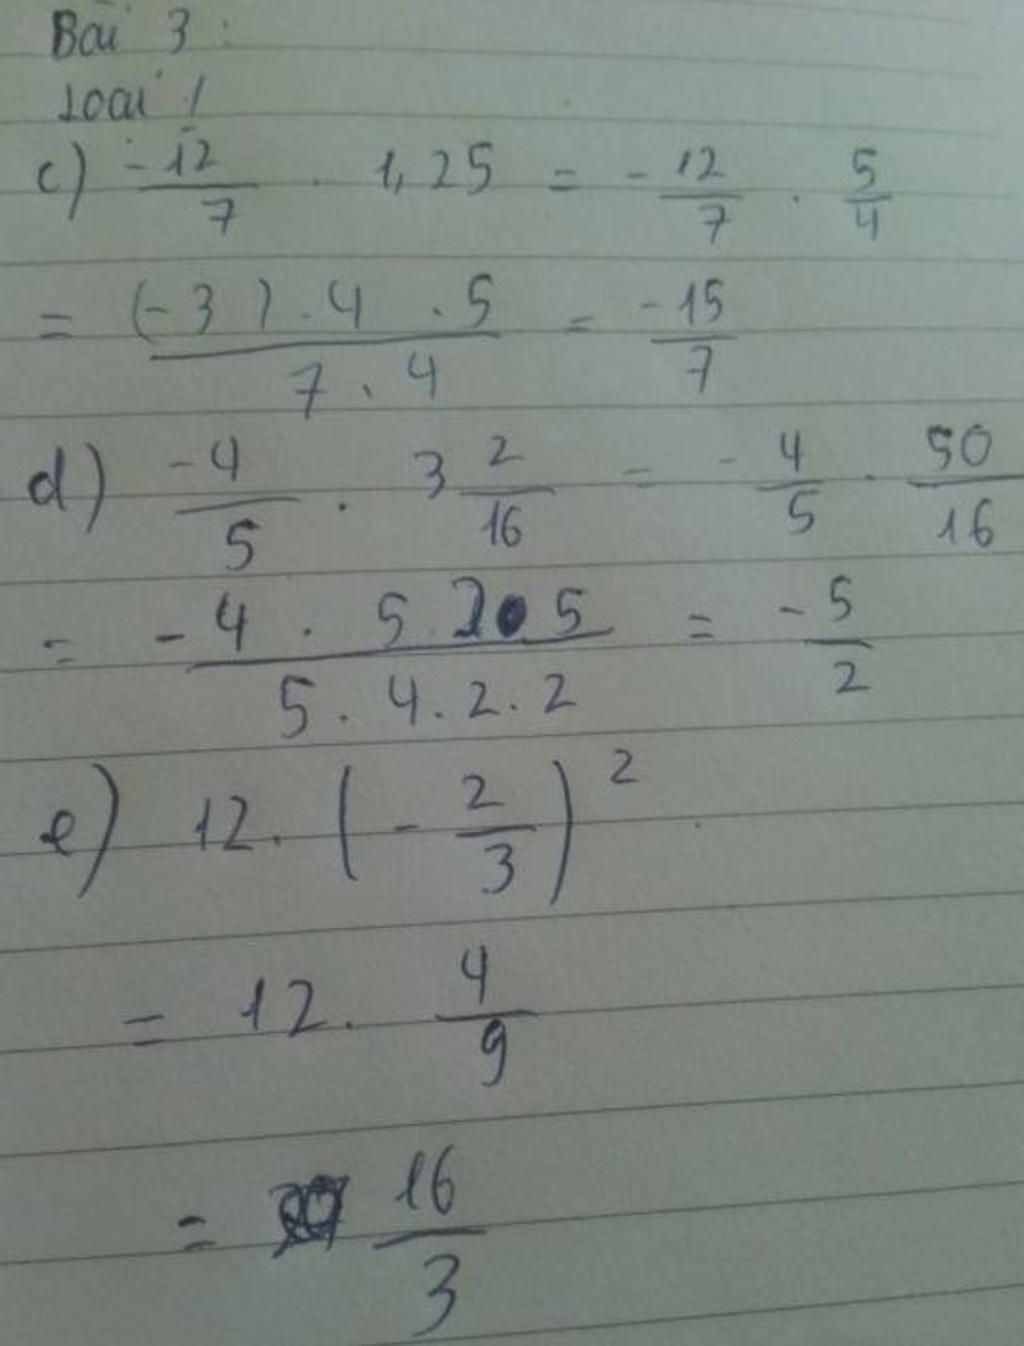 Bài 3 :
Loại 1
c) \frac{-12}{7} . 1,25 = -\frac{12}{7} . \frac{5}{4}
= \frac{(-3) . 4 . 5}{7 . 4} = \frac{-15}{7}
d) \frac{-4}{5} . 3\frac{2}{16} = -\frac{4}{5} . \frac{50}{16}
= \frac{-4 . 5 . 2 . 5}{5 . 4 . 2 . 2} = \frac{-5}{2}
e) 12 . (-\frac{2}{3})^2
= 12 . \frac{4}{9}
= \frac{16}{3}